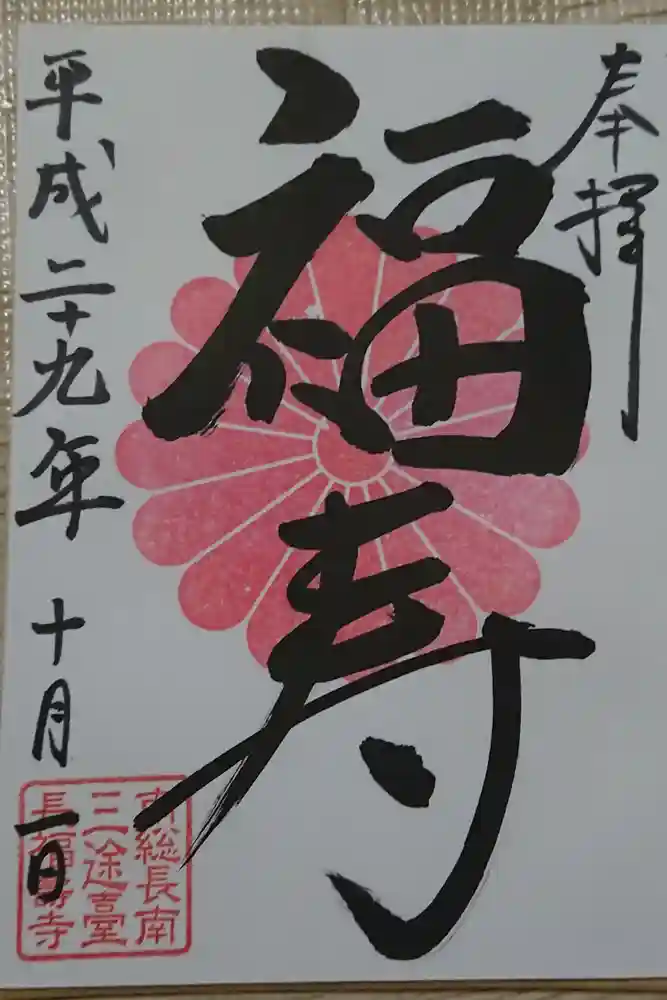 奉拝
福寿
平成二十九年 十月 一日
南総長南
三途台
長福寿寺